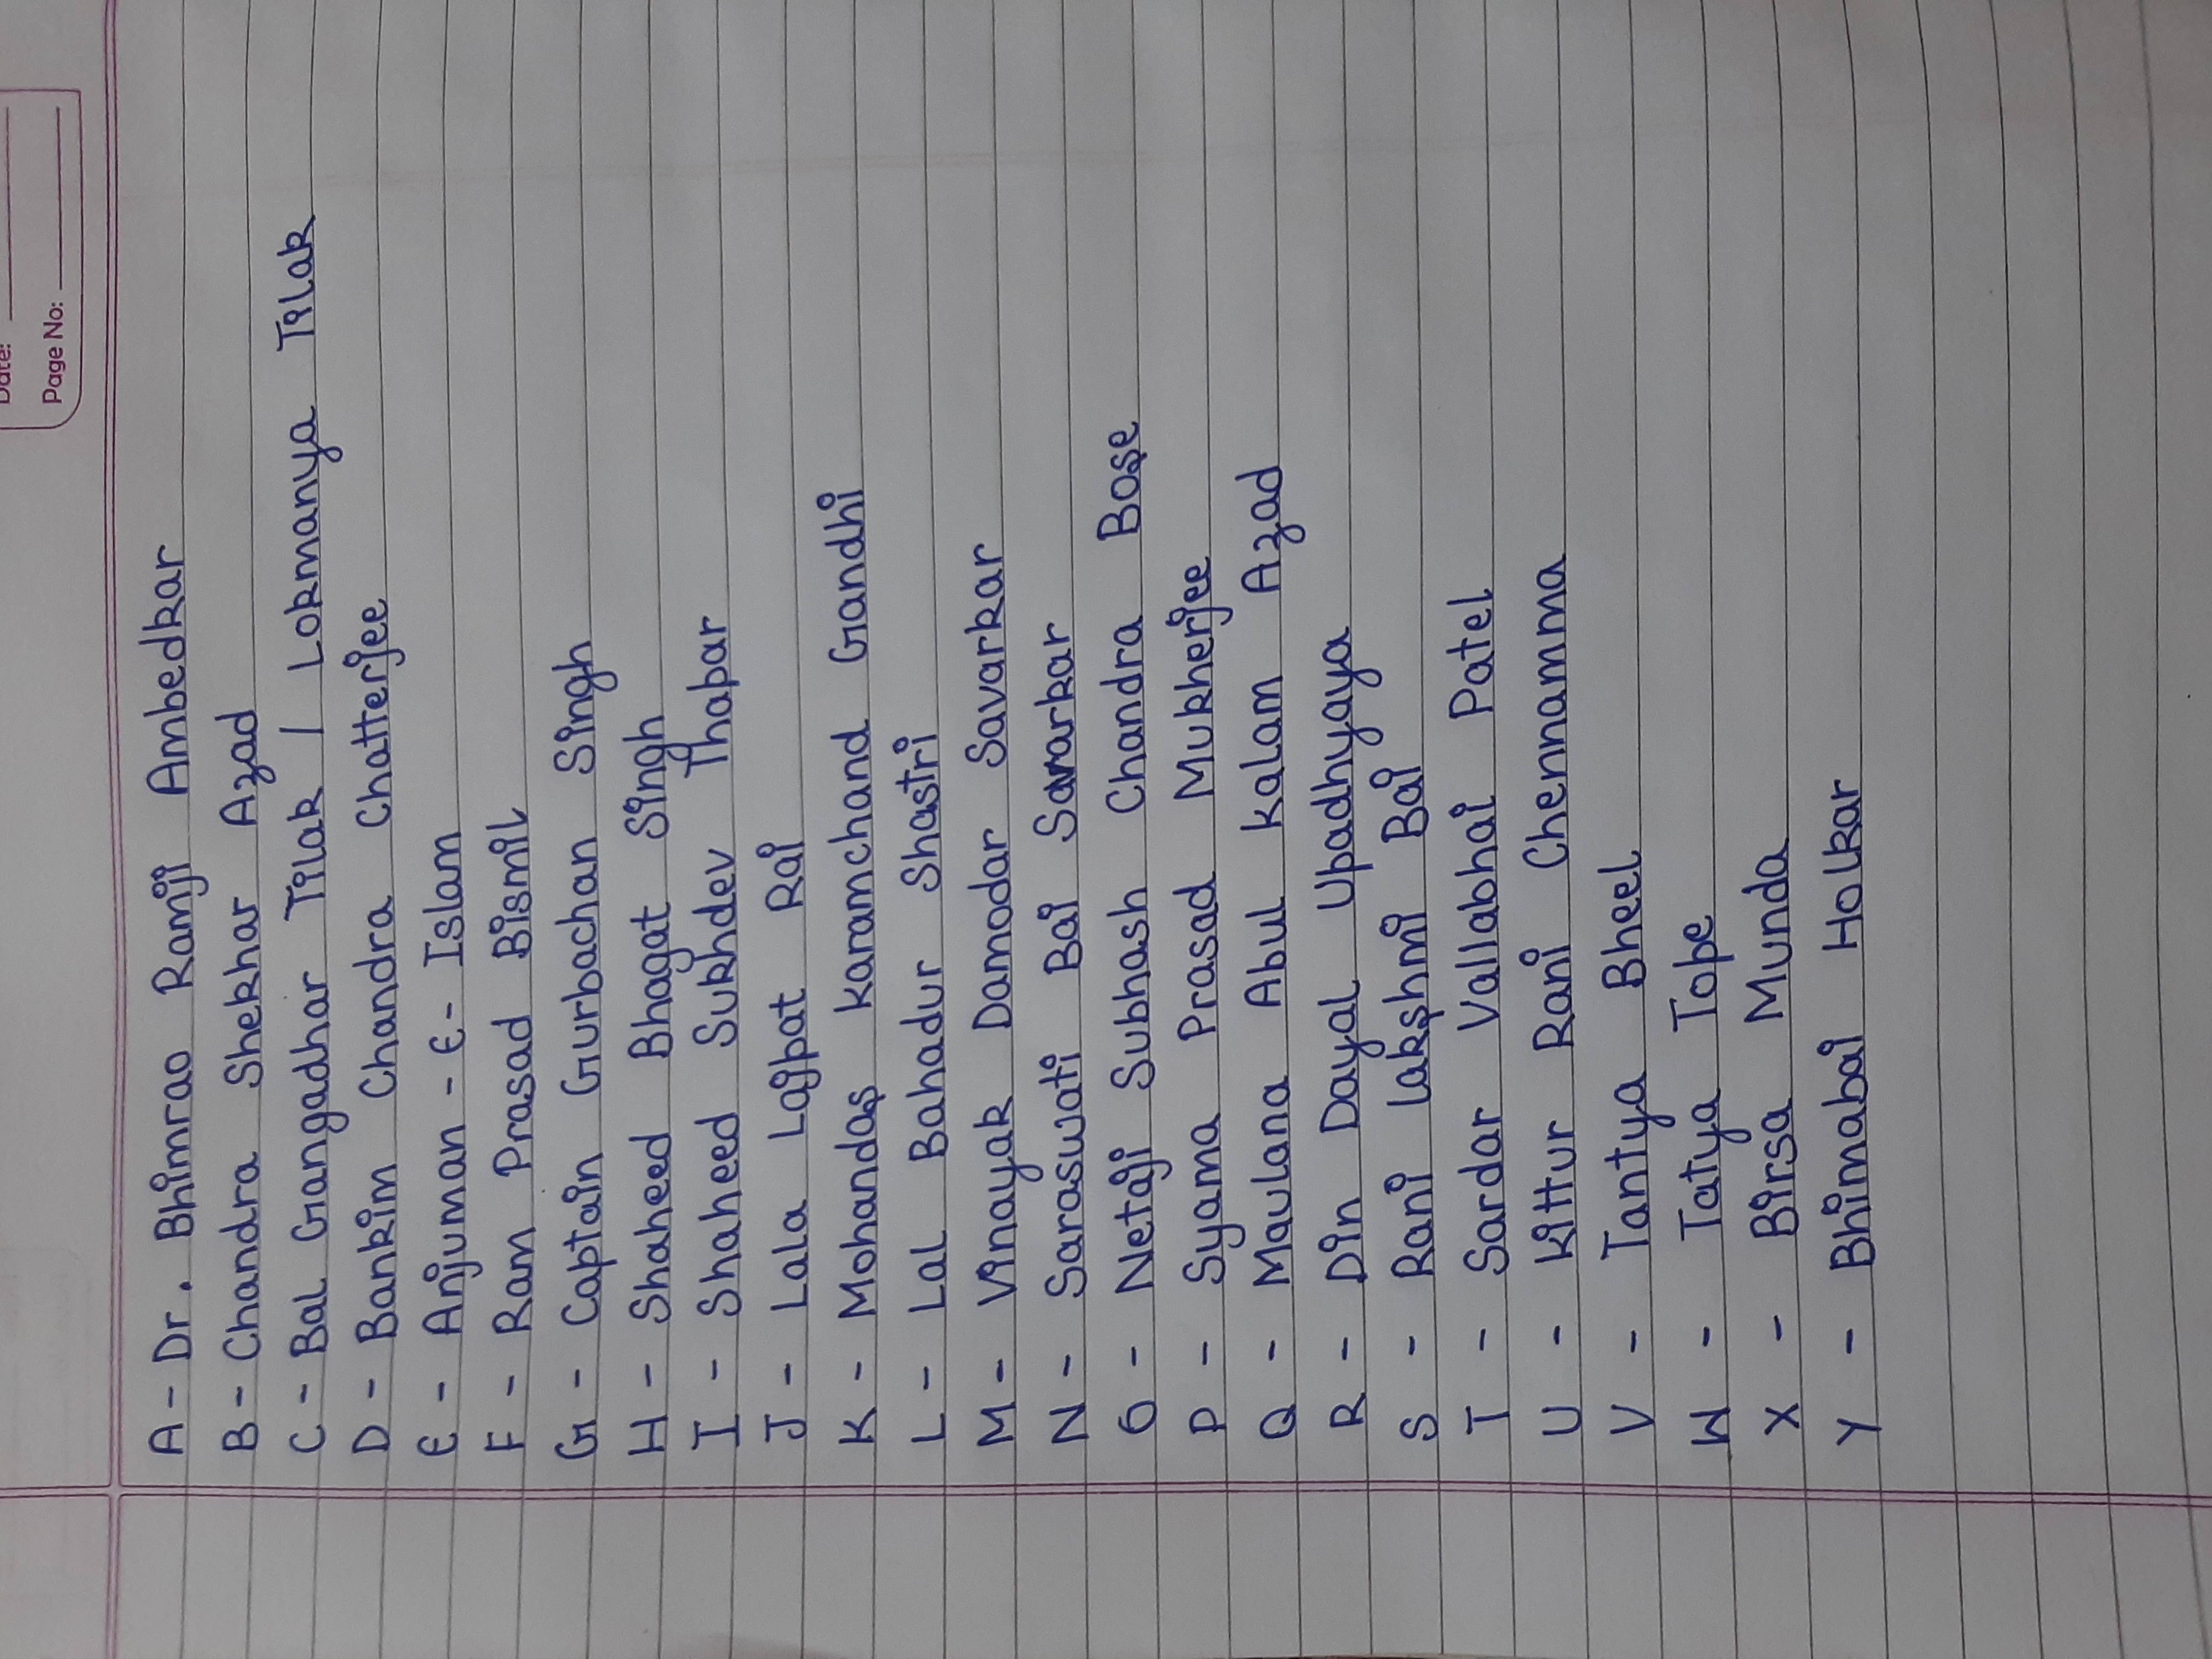 Date:
Page No:
A - Dr. Bhimrao Ramji Ambedkar
B - Chandra Shekhar Azad
C - Bal Gangadhar Tilak / Lokmanya Tilak
D - Bankim Chandra Chatterjee
E - Anjuman - E - Islam
F - Ram Prasad Bismil
G - Captain Gurbachan Singh
H - Shaheed Bhagat Singh
I - Shaheed Sukhdev Thapar
J - Lala Lajpat Rai
K - Mohandas Karamchand Gandhi
L - Lal Bahadur Shastri
M - Vinayak Damodar Savarkar
N - Saraswati Bai Savarkar
O - Netaji Subhash Chandra Bose
P - Syama Prasad Mukherjee
Q - Maulana Abul Kalam Azad
R - Din Dayal Upadhyaya
S - Rani Lakshmi Bai
T - Sardar Vallabhai Patel
U - Kittur Rani Chennamma
V - Tantya Bheel
W - Tatya Tope
X - Birsa Munda
Y - Bhimabai Holkar